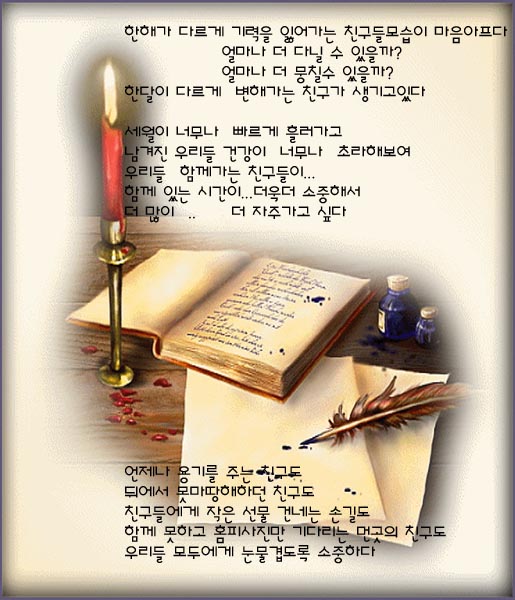 한해가 다르게 기력을 잃어가는 친구들모습이 마음아프다
얼마나 더 다닐 수 있을까?
얼마나 더 뭉칠수 있을까?
한달이 다르게 변해가는 친구가 생기고있다
세월이 너무나 빠르게 흘러가고
남겨진 우리들 건강이 너무나 초라해보여
우리들 함께가는 친구들이...
함께 있는 시간이...더욱더 소중해서
더 많이 .. 더 자주가고 싶다
언제나 용기를 주는 친구도
뒤에서 못마땅해하던 친구도
친구들에게 작은 선물 건네는 손길도
함께 못하고 홈피사진만 기다리는 먼곳의 친구도
우리들 모두에게 눈물겹도록 소중하다